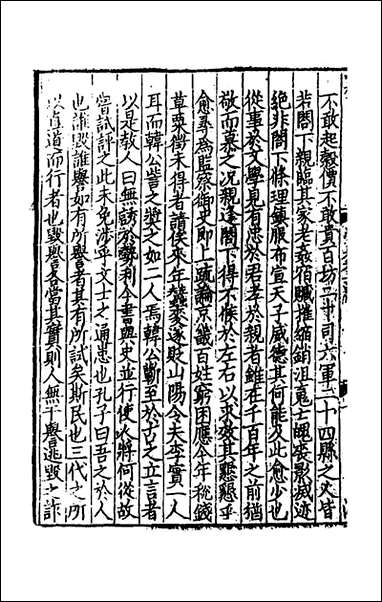 不敢起穀價不敢貴百坊百二十司六軍二十四縣之人皆
若閤下親臨其家老姦宿贓摧縮銷沮䰟亡魄喪影滅迹
絶非閤下條理鎮服布宣天子威德其何能及此愈少也
從事於文學見有忠於君孝於親者雖在千百年之前猶
敬而慕之況親逢閤下得不候於左右以求效其懇懇乎
愈尋為監察御史即上疏論京畿百姓窮困應今年稅錢
草粟徵未得者請俟來年蠶麥遂貶山陽令夫李實一人
耳而韓公訾之奬之如二人焉韓公勸至於古之立言者
以是教人曰無誘於勢利今書與史並行使人將何從故
嘗試評之此未免涉乎文士之通患也孔子曰吾之於人
也誰毀誰譽如有所譽者其有所試矣斯民也三代之所
以直道而行者也毀譽各當其實則人無干譽逃毀之詐